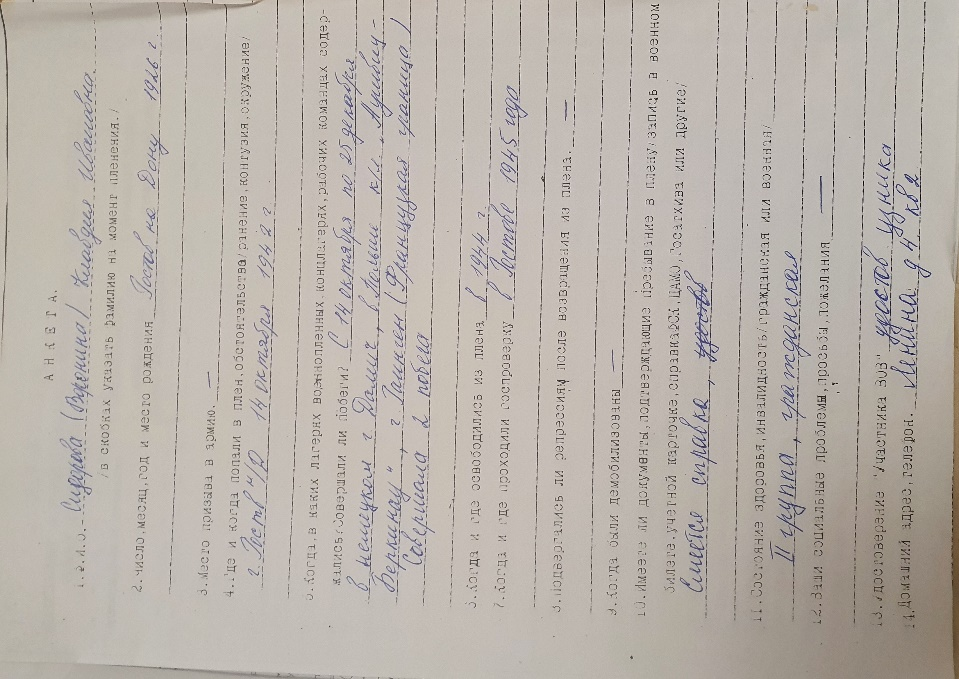 АНКЕТА.
1.Ф.И.О. Сидорова (Воронина) Клавдия Ивановна
/в скобках указать фамилию на момент пленения./
2.Число,месяц,год и место рождения Ростов на Дону 1926 г
3.Место призыва в армию. —
4.Где и когда попали в плен,обстоятельства/ранение,контузия,окружение/
г. Ростов н/Д 14 октября 1942 г
5.Когда,в каких лагерях военнопленных,концлагерях,рабочих командах содер-
жались,совершали ли побеги? С 14 октября по 25 декабря
в немецком г. , в Польши к/л "
Беркинау", г. (Французкая граница)
Совершила 2 побега
6.Когда и где освободились из плена в 1944 г.
7.Когда и где проходили госпроверку в Ростове 1945 года
8.Подвергались ли репрессиям после возвращения из плена. —
9.Когда были демобилизованы —
10.Имеете ли документы,подтверждающие пребывание в плену/запись в военном
билете,учетной карточке,справка ФСК,ЦАМО,Госархива или другие/
Имеется справка,
11.Состояние здоровья,инвалидность/гражданская или военная/
II группа, гражданская
12.Ваши социальные проблемы,просьбы,пожелания —
13.Удостоверение "Участника ВОВ" удостов узника
14.Домашний адрес,телефон. Ленина д 4 кв а